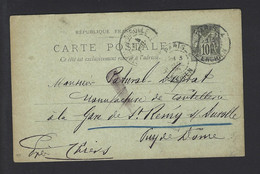 RÉPUBLIQUE FRANÇAISE
CARTE POSTALE
Ce côté est exclusivement réservé à l'adresse.
10
Monsieur
Manufacture de Coutellerie
à la Gare de St Remy s/ Durolle
Puy de Dôme
Thiers